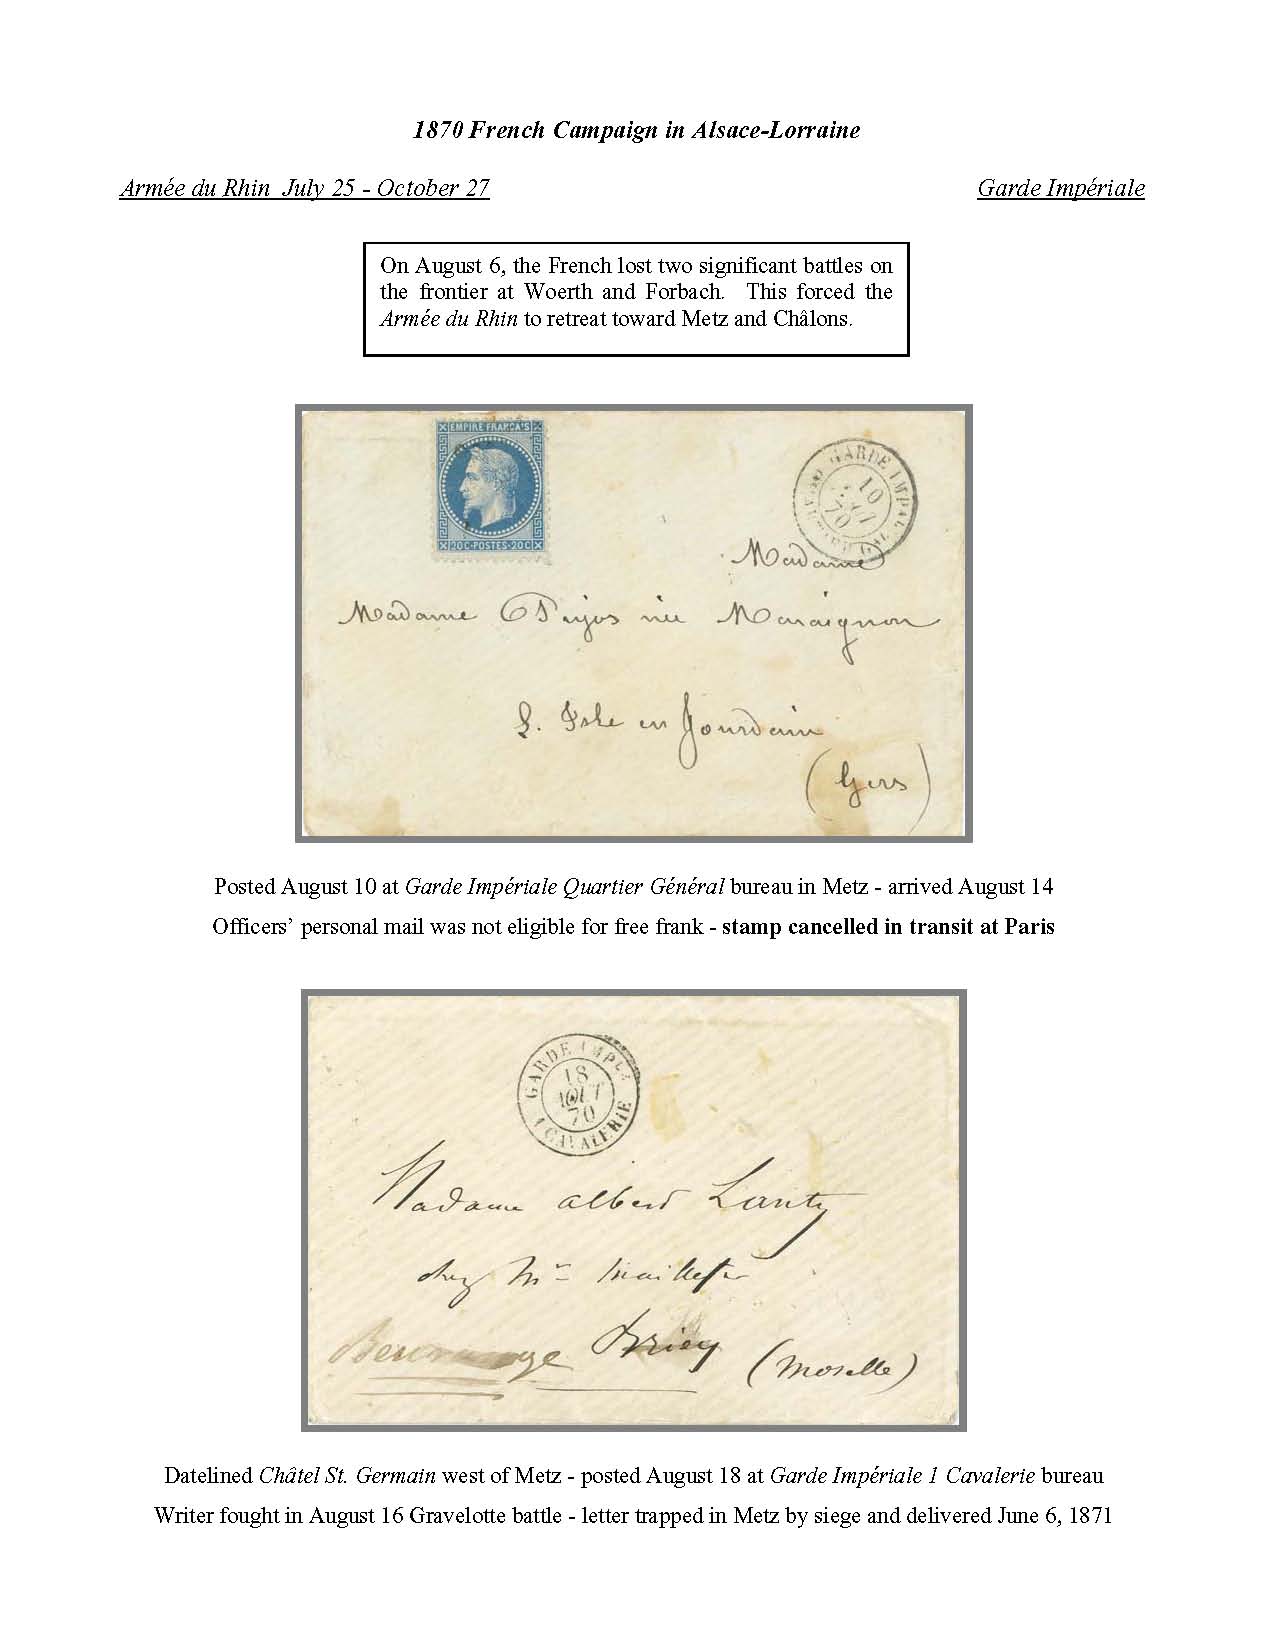 1870 French Campaign in Alsace-Lorraine
Armée du Rhin  July 25 - October 27
Garde Impériale
On August 6, the French lost two significant battles on
the frontier at Woerth and Forbach.  This forced the
Armée du Rhin to retreat toward Metz and Châlons.
EMPIRE FRANÇAIS
20C·POSTES·20C
GARDE IMPALE
10
70
Madame
Madame née Maraignon
L. Isle en Jourdain
(Gers)
Posted August 10 at Garde Impériale Quartier Général bureau in Metz - arrived August 14
Officers’ personal mail was not eligible for free frank - stamp cancelled in transit at Paris
GARDE IMPLE
18
AOUT
70
1 CAVALERIE
Madame Albert Lanty
chez Mr
Briey (Moselle)
Datelined Châtel St. Germain west of Metz - posted August 18 at Garde Impériale 1 Cavalerie bureau
Writer fought in August 16 Gravelotte battle - letter trapped in Metz by siege and delivered June 6, 1871